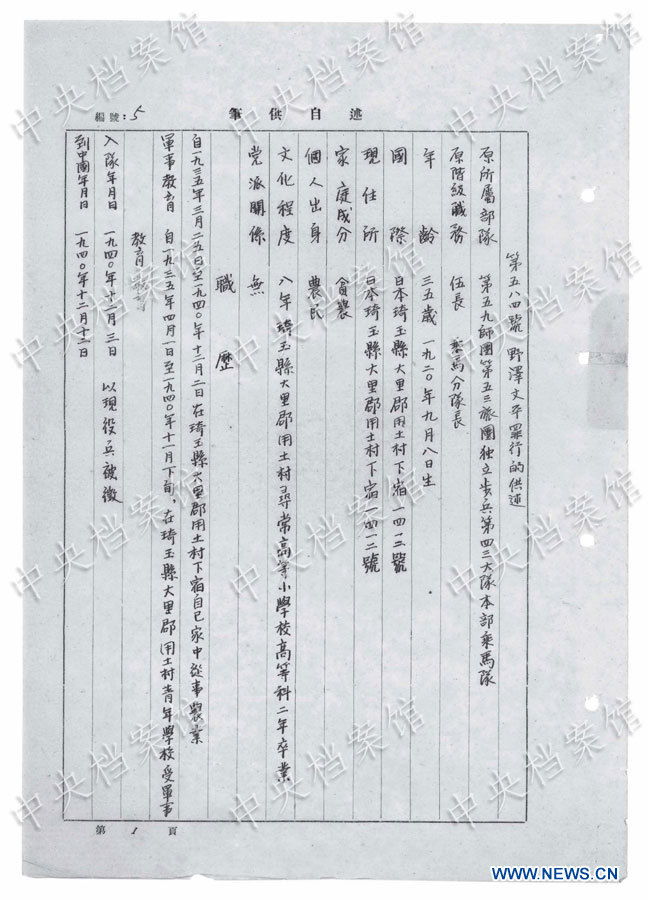 述自供筆
編號:5
第五八四號 野澤文平罪行的供述
原所屬部隊 第五九師團第五三旅團獨立步兵第四三大隊本部乘馬隊
原階級職務 伍長 乘馬分隊長
年齡 三五歲 一九二〇年九月八日生
國際 日本埼玉縣大里郡用土村下宿一四一二號
現住所 日本埼玉縣大里郡用土村下宿一四一二號
家庭成分 貧農
個人出身 農民
文化程度 八年埼玉縣大里郡用土村尋常高等小學校高等科二年卒業
党派關係 無
職歷
自一九三五年三月二五日至一九四〇年十二月二日在琦玉縣大里郡用土村下宿自己家中從事農業
軍事教育 自一九三五年四月一日至一九四〇年十一月下旬,在琦玉縣大里郡用土村青年學校受軍事
教育
入隊年月日 一九四〇年十二月三日 以現役兵被徵
到中國年月日 一九四〇年十二月十二日
第1頁
中央档案馆
WWW.NEWS.CN